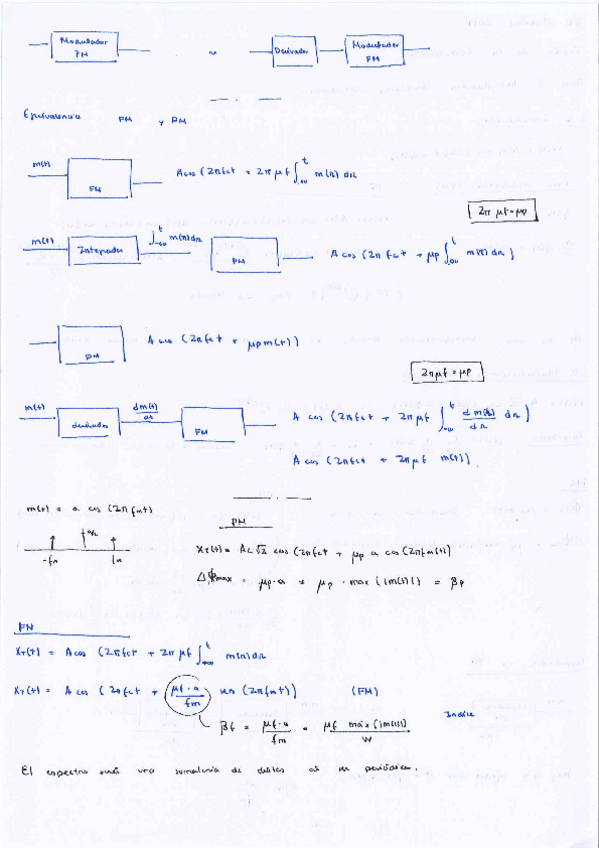 Modulador PM ~ Derivador Modulador FM
Equivalencia FM y PM
m(t) FM A cos (2πfct + 2πμf ∫_{-∞}^{t} m(λ) dλ
2π μf = μp
m(t) Integrador ∫_{-∞}^{t} m(λ)dλ PM A cos (2πfct + μp ∫_{-∞}^{t} m(λ) dλ)
PM A cos (2πfct + μp m(t))
2πμf = μp
m(t) derivador dm(t)/dt FM A cos (2πfct + 2πμf ∫_{-∞}^{t} dm(λ)/dλ dλ)
A cos (2πfct + 2πμf m(t)).
m(t) = a cos (2πfmt)
PM
a/2
-fm fm
XT(t) = Ac√2 cos (2πfct + μp a cos (2πfmt))
ΔΦmax = μp·a = μp · max{|m(t)|} = βp
FM
XT(t) = A cos (2πfct + 2πμf ∫_{-∞}^{t} m(λ)dλ
XT(t) = A cos (2πfct + μf·a/fm sen (2πfmt)) (FM)
βf = μf·a/fm = μf máx{|m(t)|}/W Indice
El espectro será una sumatoria de deltas si m periódica.